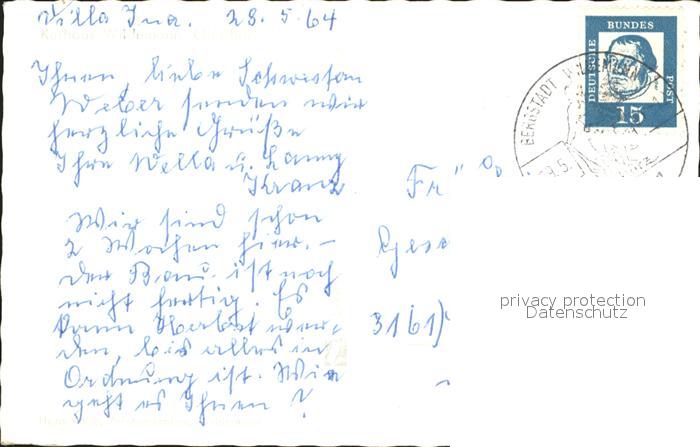 Villa Ina. 28.5.64
Ihnen, liebe Schwester
Weber senden wir
herzliche Grüße
Ihre Wella u. Lanny
Kranz
Wir sind schon
2 Wochen hier. –
der Bau ist noch
nicht fertig. Es
kann Herbst wer-
den, bis alles in
Ordnung ist. Wie
geht es Ihnen?
Fr
3161)
DEUTSCHE
BUNDES
POST
15
BERGSTADT WILDEMANN
privacy protection
Datenschutz